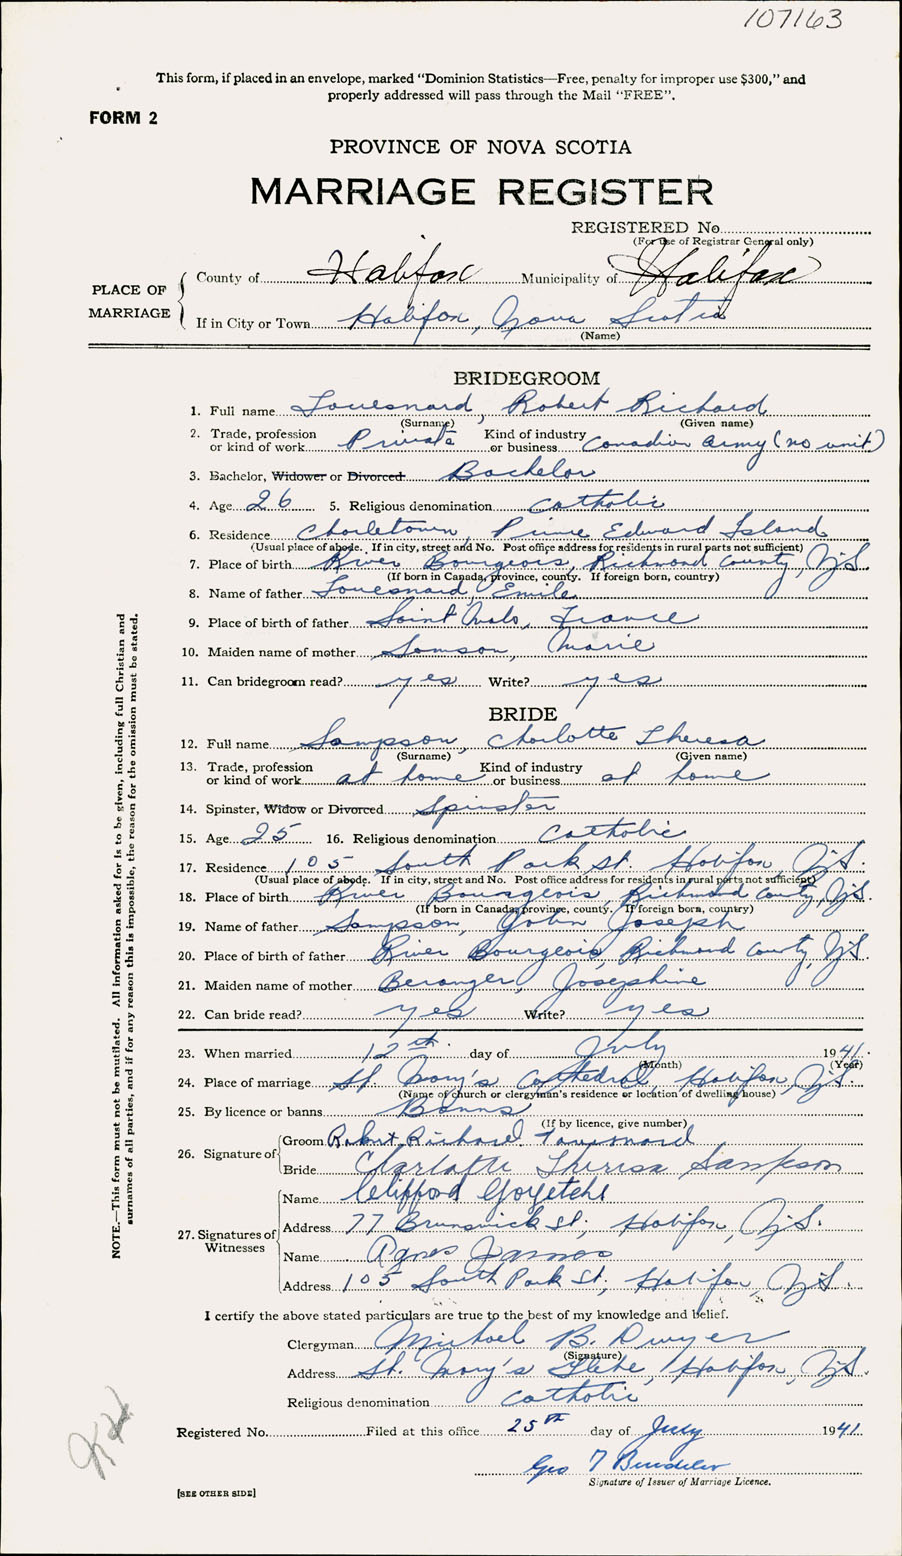 107163
This form, if placed in an envelope, marked "Dominion Statistics—Free, penalty for improper use $300," and
properly addressed will pass through the Mail "FREE".
FORM 2
PROVINCE OF NOVA SCOTIA
MARRIAGE REGISTER
REGISTERED No.
(For Use of Registrar General only)
PLACE OF MARRIAGE
County of Halifax Municipality of Halifax
If in City or Town Halifax, Nova Scotia
(Name)
BRIDEGROOM
1. Full name Touesnard, Robert Richard
(Surname) (Given name)
2. Trade, profession or kind of work Private Kind of industry or business Canadian Army (no unit)
3. Bachelor, Widower or Divorced Bachelor
4. Age 26 5. Religious denomination Catholic
6. Residence Charletown, Prince Edward Island
(Usual place of abode. If in city, street and No. Post office address for residents in rural parts not sufficient)
7. Place of birth River Bourgeois, Richmond County, N.S.
(If born in Canada, province, county. If foreign born, country)
8. Name of father Touesnard, Emile
9. Place of birth of father Saint Malo, France
10. Maiden name of mother Samson, Marie
11. Can bridegroom read? yes Write? yes
BRIDE
12. Full name Sampson, Charlotte Theresa
(Surname) (Given name)
13. Trade, profession or kind of work at home Kind of industry or business at home
14. Spinster, Widow or Divorced Spinster
15. Age 25 16. Religious denomination Catholic
17. Residence 105 South Park St. Halifax, N.S.
(Usual place of abode. If in city, street and No. Post office address for residents in rural parts not sufficient)
18. Place of birth River Bourgeois, Richmond County, N.S.
(If born in Canada, province, county. If foreign born, country)
19. Name of father Sampson, John Joseph
20. Place of birth of father River Bourgeois, Richmond County, N.S.
21. Maiden name of mother Beranger, Josephine
22. Can bride read? yes Write? yes
23. When married 12th day of July 1941.
(Month) (Year)
24. Place of marriage St. Mary's Cathedral, Halifax, N.S.
(Name of church or clergyman's residence or location of dwelling house)
25. By licence or banns Banns
(If by licence, give number)
26. Signature of
Groom Robert Richard Touesnard
Bride Charlotte Theresa Sampson
27. Signatures of Witnesses
Name Clifford Goyetche
Address 77 Brunswick St., Halifax, N.S.
Name Agnes
Address 105 South Park St., Halifax, N.S.
I certify the above stated particulars are true to the best of my knowledge and belief.
Clergyman Michael B. Dwyer
(Signature)
Address St. Mary's Glebe, Halifax, N.S.
Religious denomination Catholic
Registered No. Filed at this office 25th day of July 1941
Geo
Signature of Issuer of Marriage Licence.
[SEE OTHER SIDE]
NOTE.—This form must not be mutilated. All information asked for is to be given, including full Christian and
surnames of all parties, and if for any reason this is impossible, the reason for the omission must be stated.